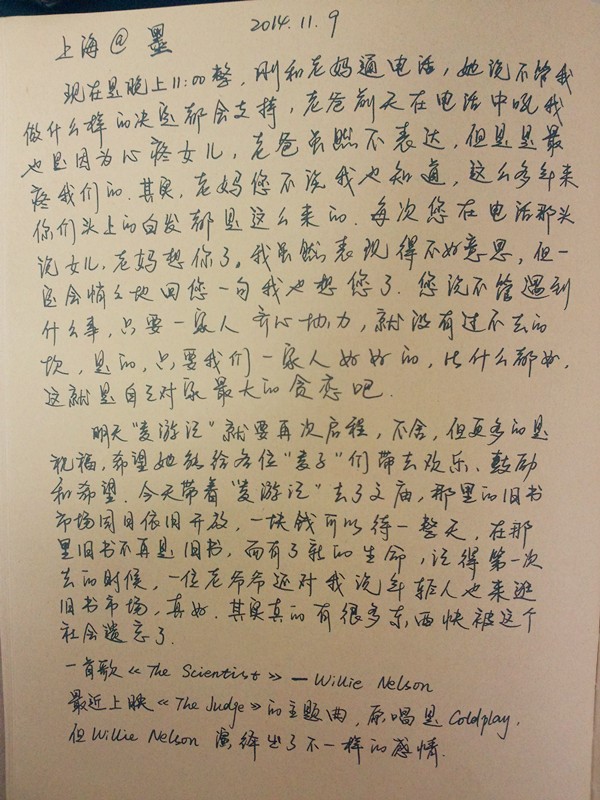 2014.11.9
上海@墨
现在是晚上11:00整，刚和老妈通电话，她说不管我
做什么样的决定都会支持，老爸前天在电话中吼我
也是因为心疼女儿，老爸虽然不表达，但是是最
疼我们的.其实，老妈您不说我也知道，这么多年来
你们头上的白发都是这么来的.每次您在电话那头
说女儿，老妈想你了。我虽然表现得不好意思，但一
定会悄悄地回您一句我也想您了.您说不管遇到
什么事，只要一家人齐心协力，就没有过不去的
坎，是的，只要我们一家人好好的，比什么都好，
这就是自己对家最大的贪恋吧.
明天“麦游记”就要再次启程，不舍，但更多的是
祝福，希望她能给各位“麦子”们带去欢乐、鼓励
和希望.今天带着“麦游记”去了文庙，那里的旧书
市场周日依旧开放，一块钱可以待一整天，在那
里旧书不再是旧书，而有了新的生命，记得第一次
去的时候，一位老爷爷还对我说年轻人也来逛
旧书市场，真好.其实真的有很多东西快被这个
社会遗忘了.
一首歌《The Scientist》—Willie Nelson
最近上映《The Judge》的主题曲，原唱是Coldplay，
但Willie Nelson 演绎出了不一样的感情.